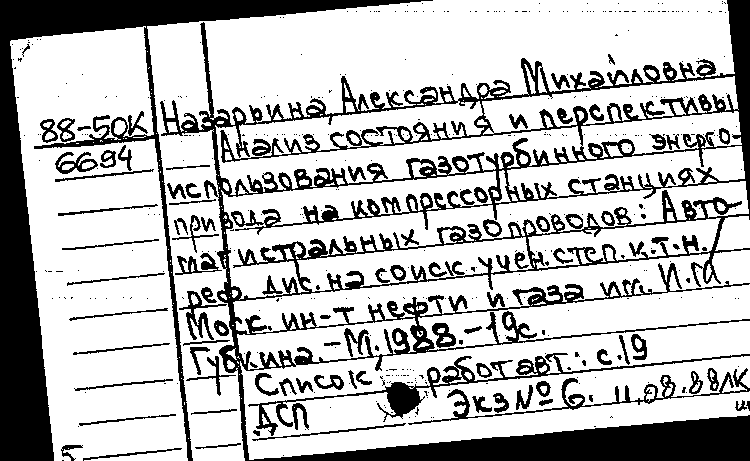 88-50К
6694
Назарьина, Александра Михайловна.
Анализ состояния и перспективы
использования газотурбинного энерго-
привода на компрессорных станциях
магистральных газопроводов: Авто-
реф. дис. на соиск. учен. степ. к.т.н.
Моск. ин-т нефти и газа им. И.М.
Губкина. - М., 1988. - 19с.
Список работ авт.: с.19
ДСП Экз № 6. 11.08.88 ЛК